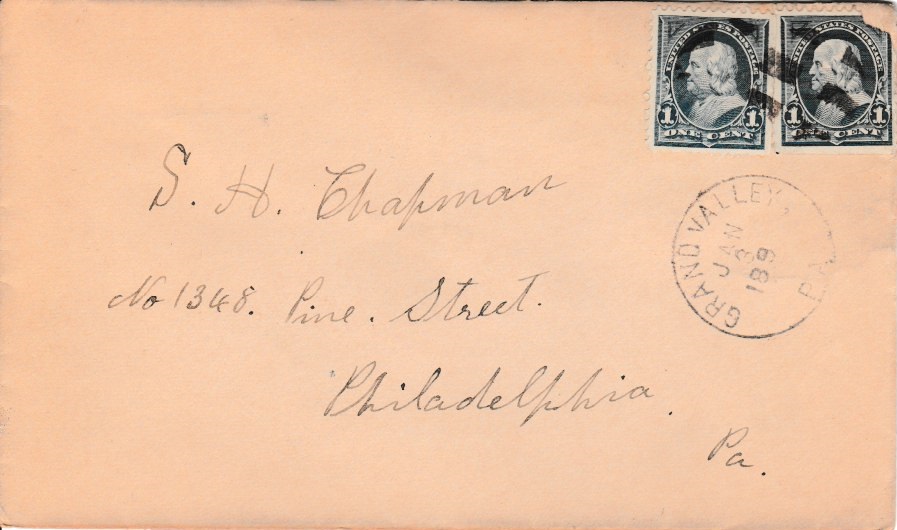 UNITED STATES POSTAGE
1 1
ONE CENT
UNITED STATES POSTAGE
1 1
ONE CENT
GRAND VALLEY, PA
JAN
3
189
S. H. Chapman
No 1348. Pine. Street.
Philadelphia.
Pa.